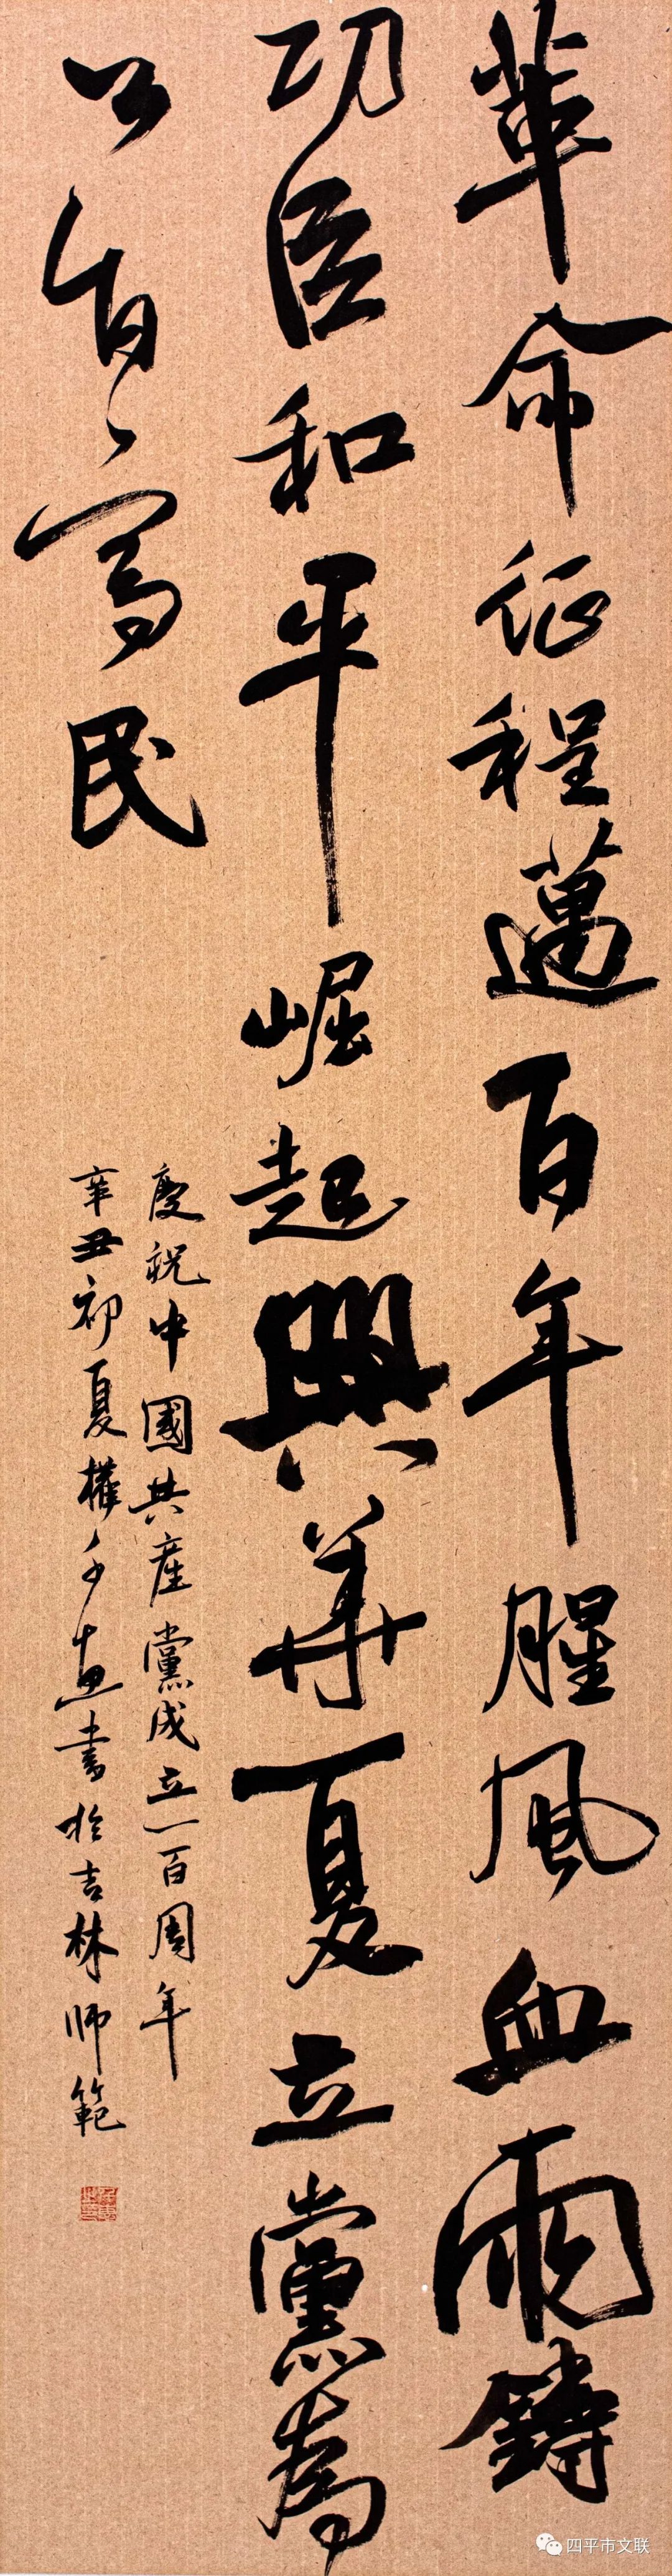 革命征程邁百年腥風血雨鑄
功臣和平崛起興華夏立黨為
公民
慶祝中國共産黨成立一百周年
辛丑初夏權惠書於吉林師範
四平市文联